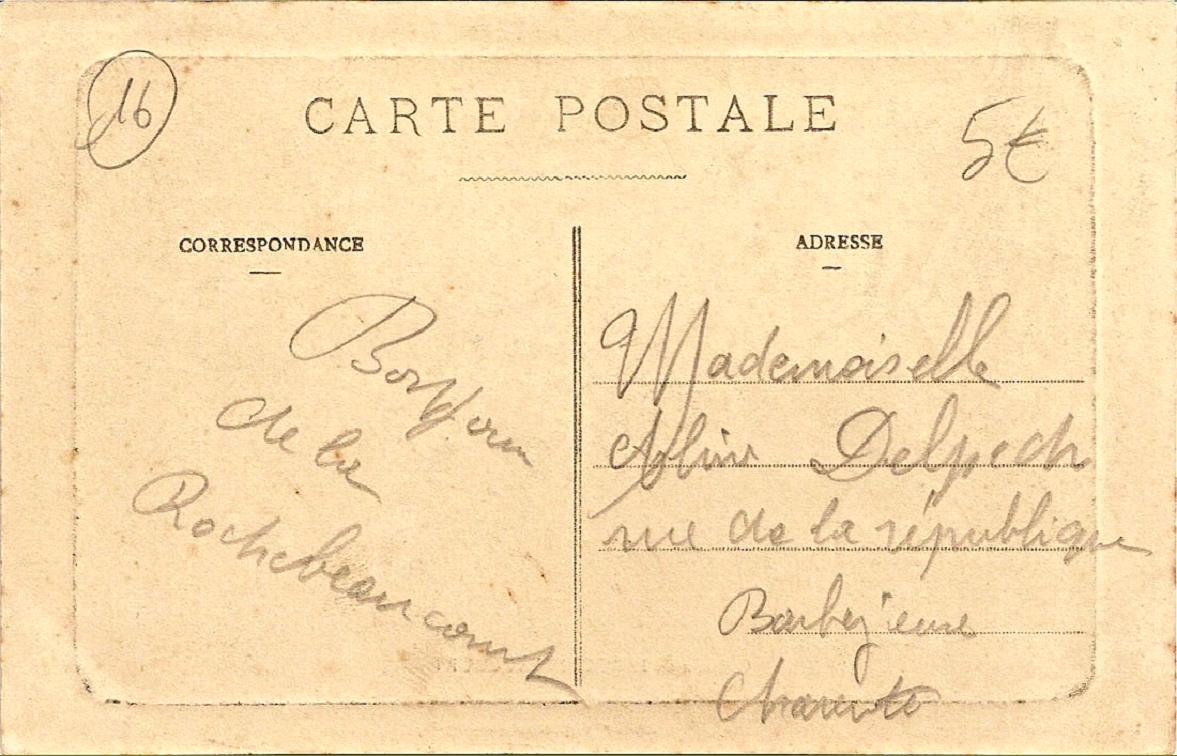 16
CARTE POSTALE
5€
CORRESPONDANCE
Bonjour
de la
Rochebeaucourt
ADRESSE
Mademoiselle
Delpech
rue de la république
Barbezieux
Charente